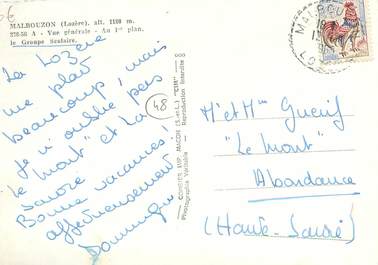 MALBOUZON (Lozère), alt. 1100 m.
278-56 A - Vue générale - Au 1er plan,
le Groupe Scolaire.
La Lozère
me plaît
beaucoup, mais
je n'oublie pas
"le mont" et la
Savoie
Bonnes vacances!
affectueusement
Dominique
48
COMBIER IMP. MACON (S.-et-L.) "CIM"
Photographie Véritable - Reproduction interdite
MALBOU
LO
M. et Mme
"Le Mont"
Abondance
(Haute-Savoie)